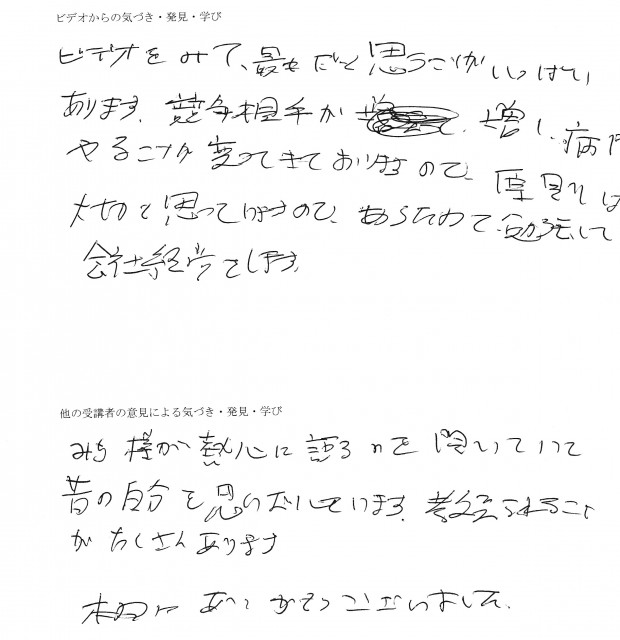 ビデオからの気づき・発見・学び
ビデオをみて、最もだと思うことがいっぱい
あります。競争相手が 増し、病
やることが変ってきておりますので、原則は
大切と思っていますので、あらためて、勉強して
会社経営をします。
他の受講者の意見による気づき・発見・学び
みな様が熱心に語るのを聞いていて
昔の自分を思いだしています。教えられること
がたくさんあります
本日はありがとうございました。